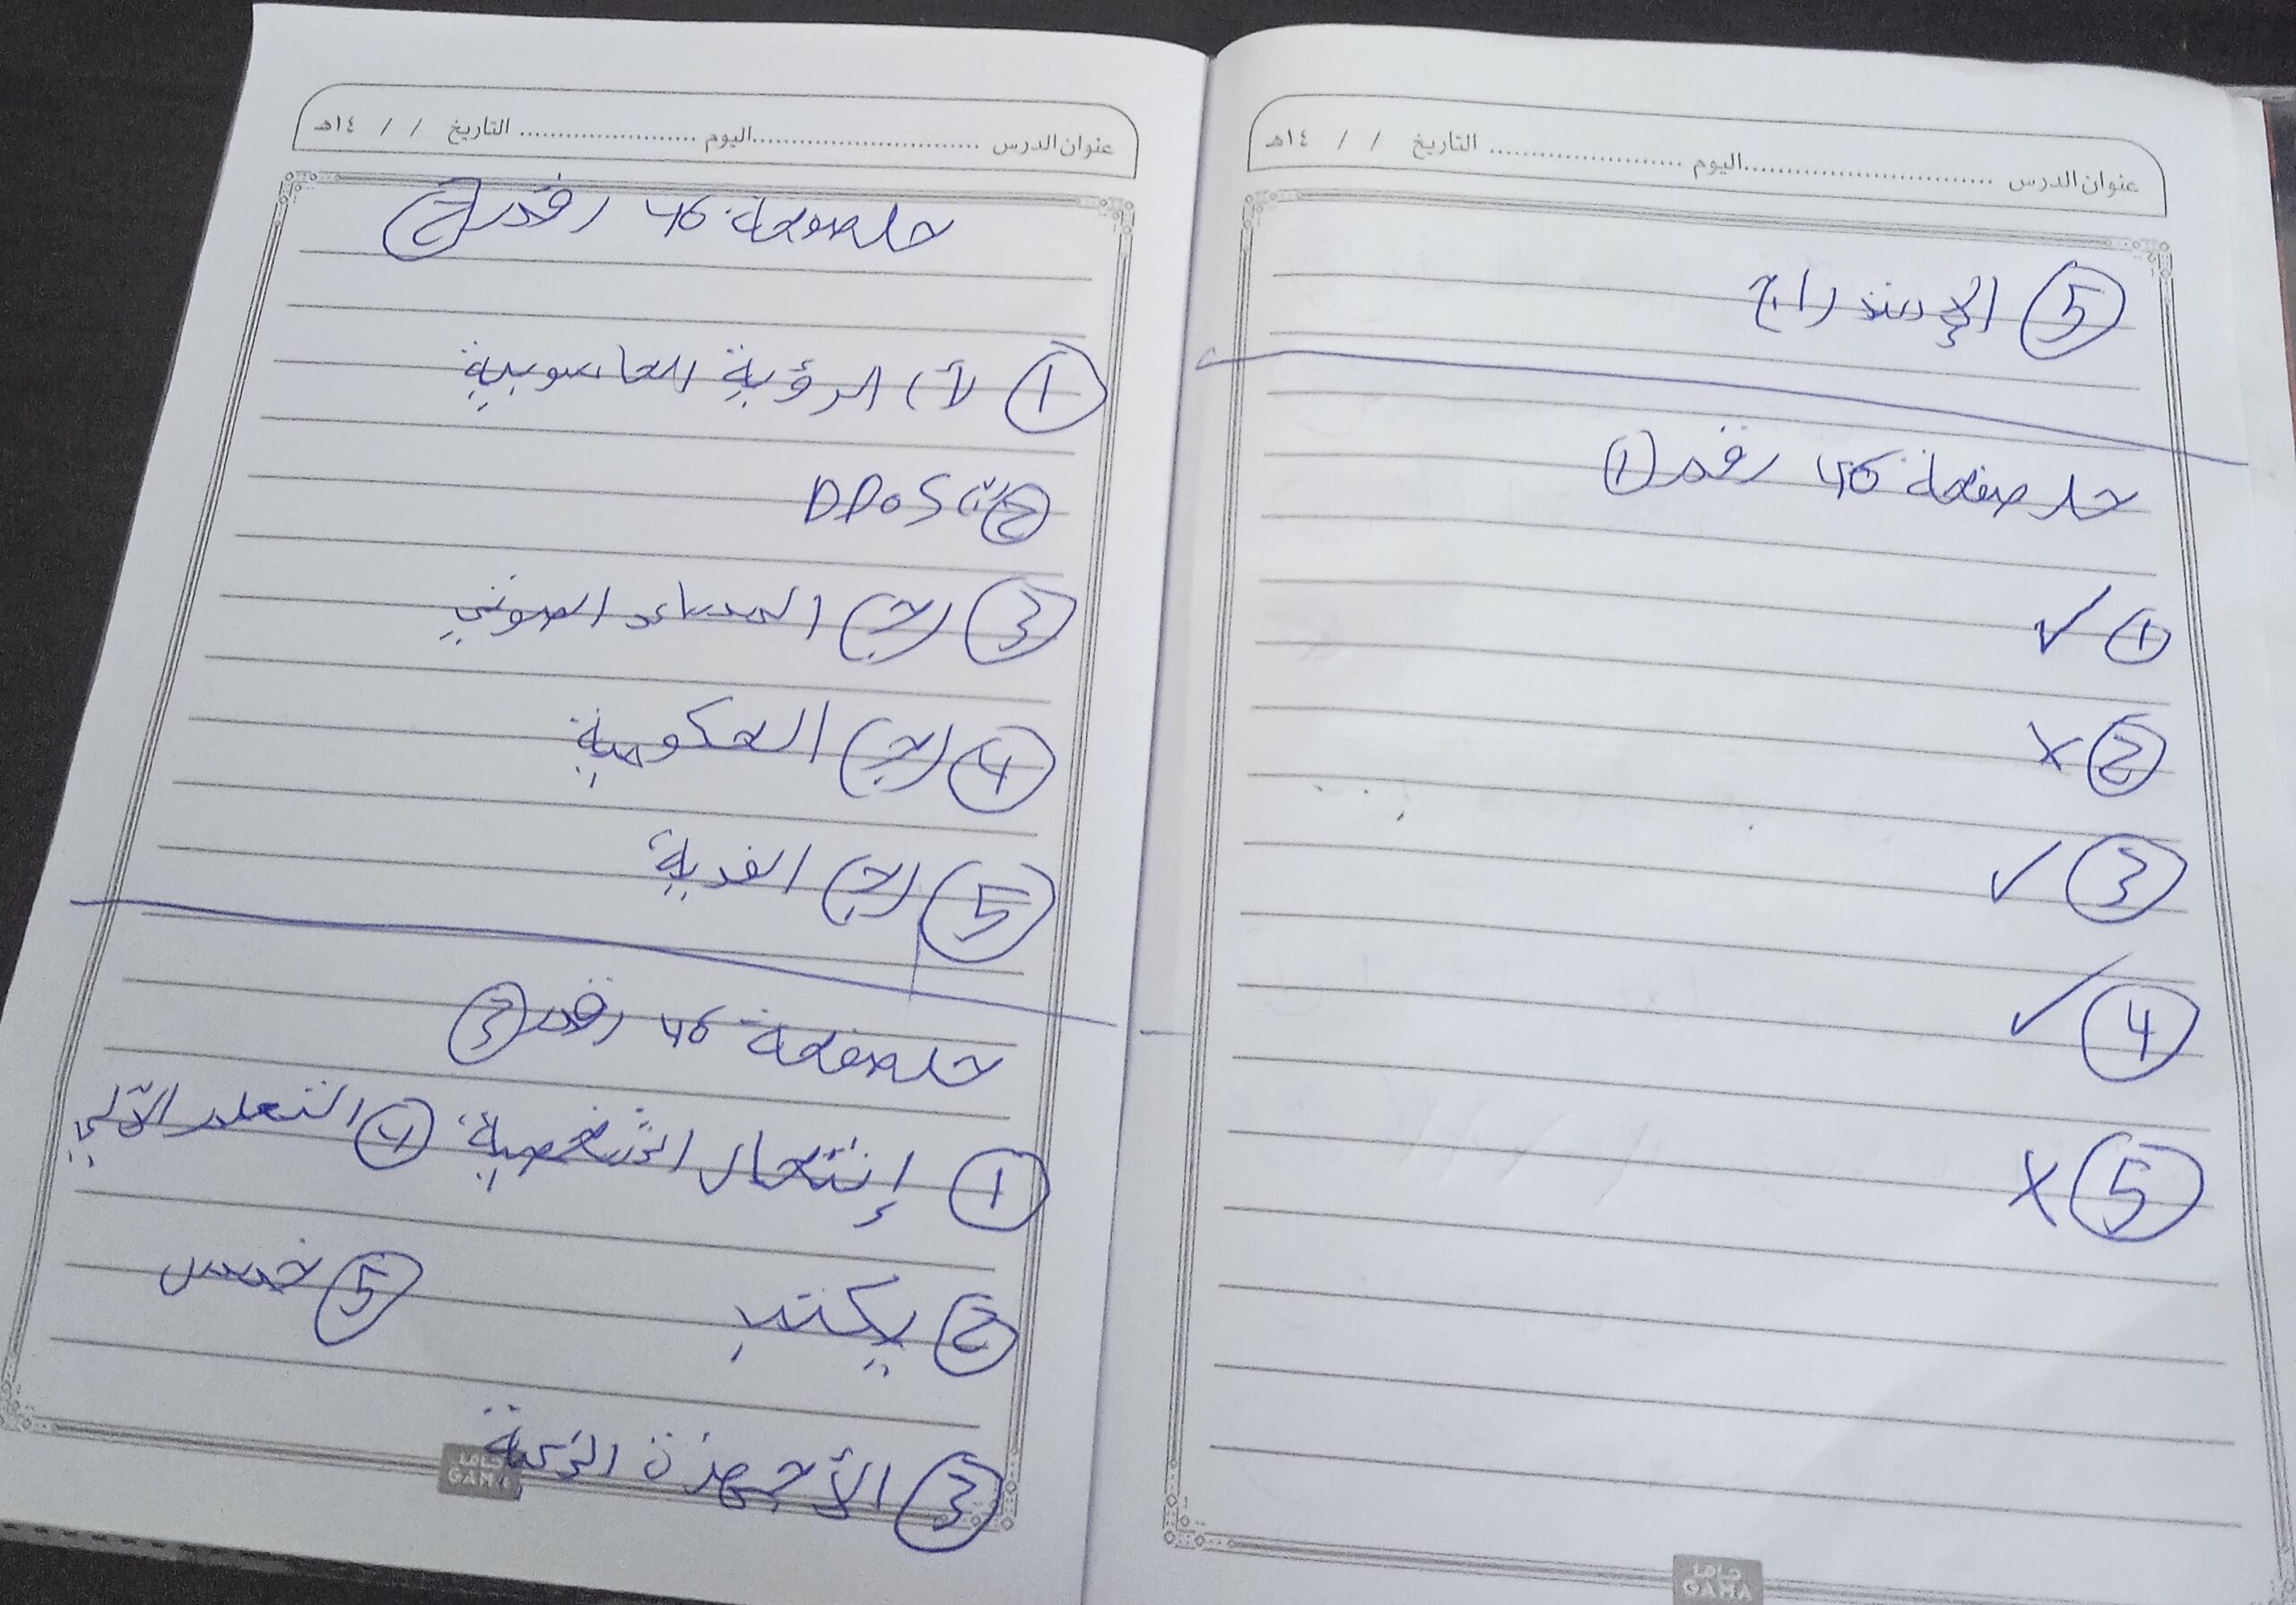 عنوان الدرس ........................ اليوم ........................ التاريخ / / ١٤هـ
5 الإستدراج
حل صفحة 46 رقم 1
1 ✓
2 ×
3 ✓
4 ✓
5 ×
جاما
GAMA
عنوان الدرس ........................ اليوم ........................ التاريخ / / ١٤هـ
حل صفحة 46 رقم 2
1 أ) الرؤية الحاسوبية
2 ب) DDoS
3 (ج) المساعد الصوتي
4 (ج) الحكومية
5 (ج) الفدية
حل صفحة 46 رقم 3
1 إنتحال الشخصية 4 التعلم الآلي
2 يكتب 5 خمس
3 الأجهزة الذكية
جاما
GAMA